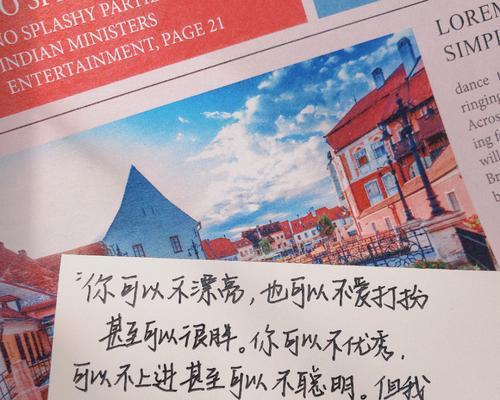 NO SPLASHY PARTI
INDIAN MINISTERS
ENTERTAINMENT, PAGE 21
LOREM
SIMPL
dance
ringing
Acros
ing
will
Br
"你可以不漂亮，也可以不爱打扮
甚至可以很胖。你可以不优秀，
可以不上进甚至可以不聪明。但我